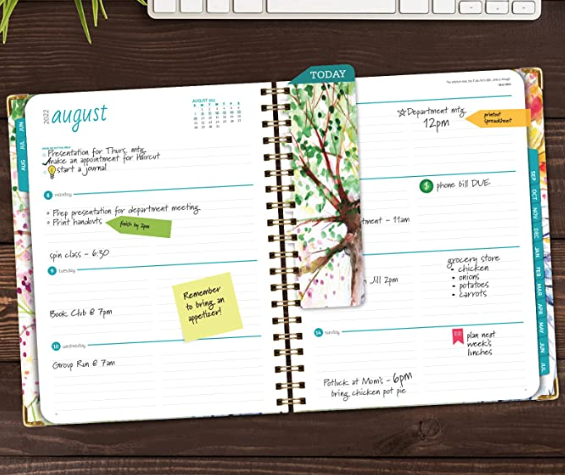 2022 august
AUGUST 2022
Presentation for Thurs. mtg.
make an appointment for Haircut
start a journal
8 monday
Prep presentation for department meeting
Print handouts
finish by 2pm
spin class - 6:30
9 tuesday
Remember
to bring an
appetizer!
Book Club @ 7pm
10 wednesday
Group Run @ 7am
TODAY
Department mtg.
12pm
printout
spreadsheet
$ phone bill DUE
tment - 11am
Jill 2pm
grocery store
chicken
onions
potatoes
carrots
14 sunday
plan next
week's
lunches
Potluck at Mom's - 6pm
bring chicken pot pie
JUN
JUL
AUG
SEP
OCT
NOV
DEC
JAN
FEB
MAR
APR
MAY
JUN
JUL